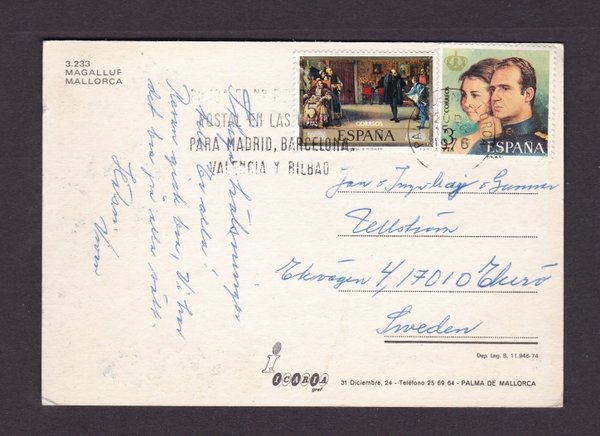 3.233
MAGALLUF
MALLORCA
POSTAL EN LAS
PARA MADRID, BARCELONA,
VALENCIA Y BILBAO
CORREOS
ESPAÑA
CORREOS
3
PTA
ESPAÑA
1976
Hälsningar
alla!
Resan gick bra, Vi har
det bra på alla sätt.
Jan o Ingmay o Gunnar
Tellström
Ekvägen 4, 17010 Ekerö
Sweden
Dep. Leg. B. 11.946-74
i
ICARIA
graf
31 Diciembre, 24 - Teléfono 25 69 64 - PALMA DE MALLORCA